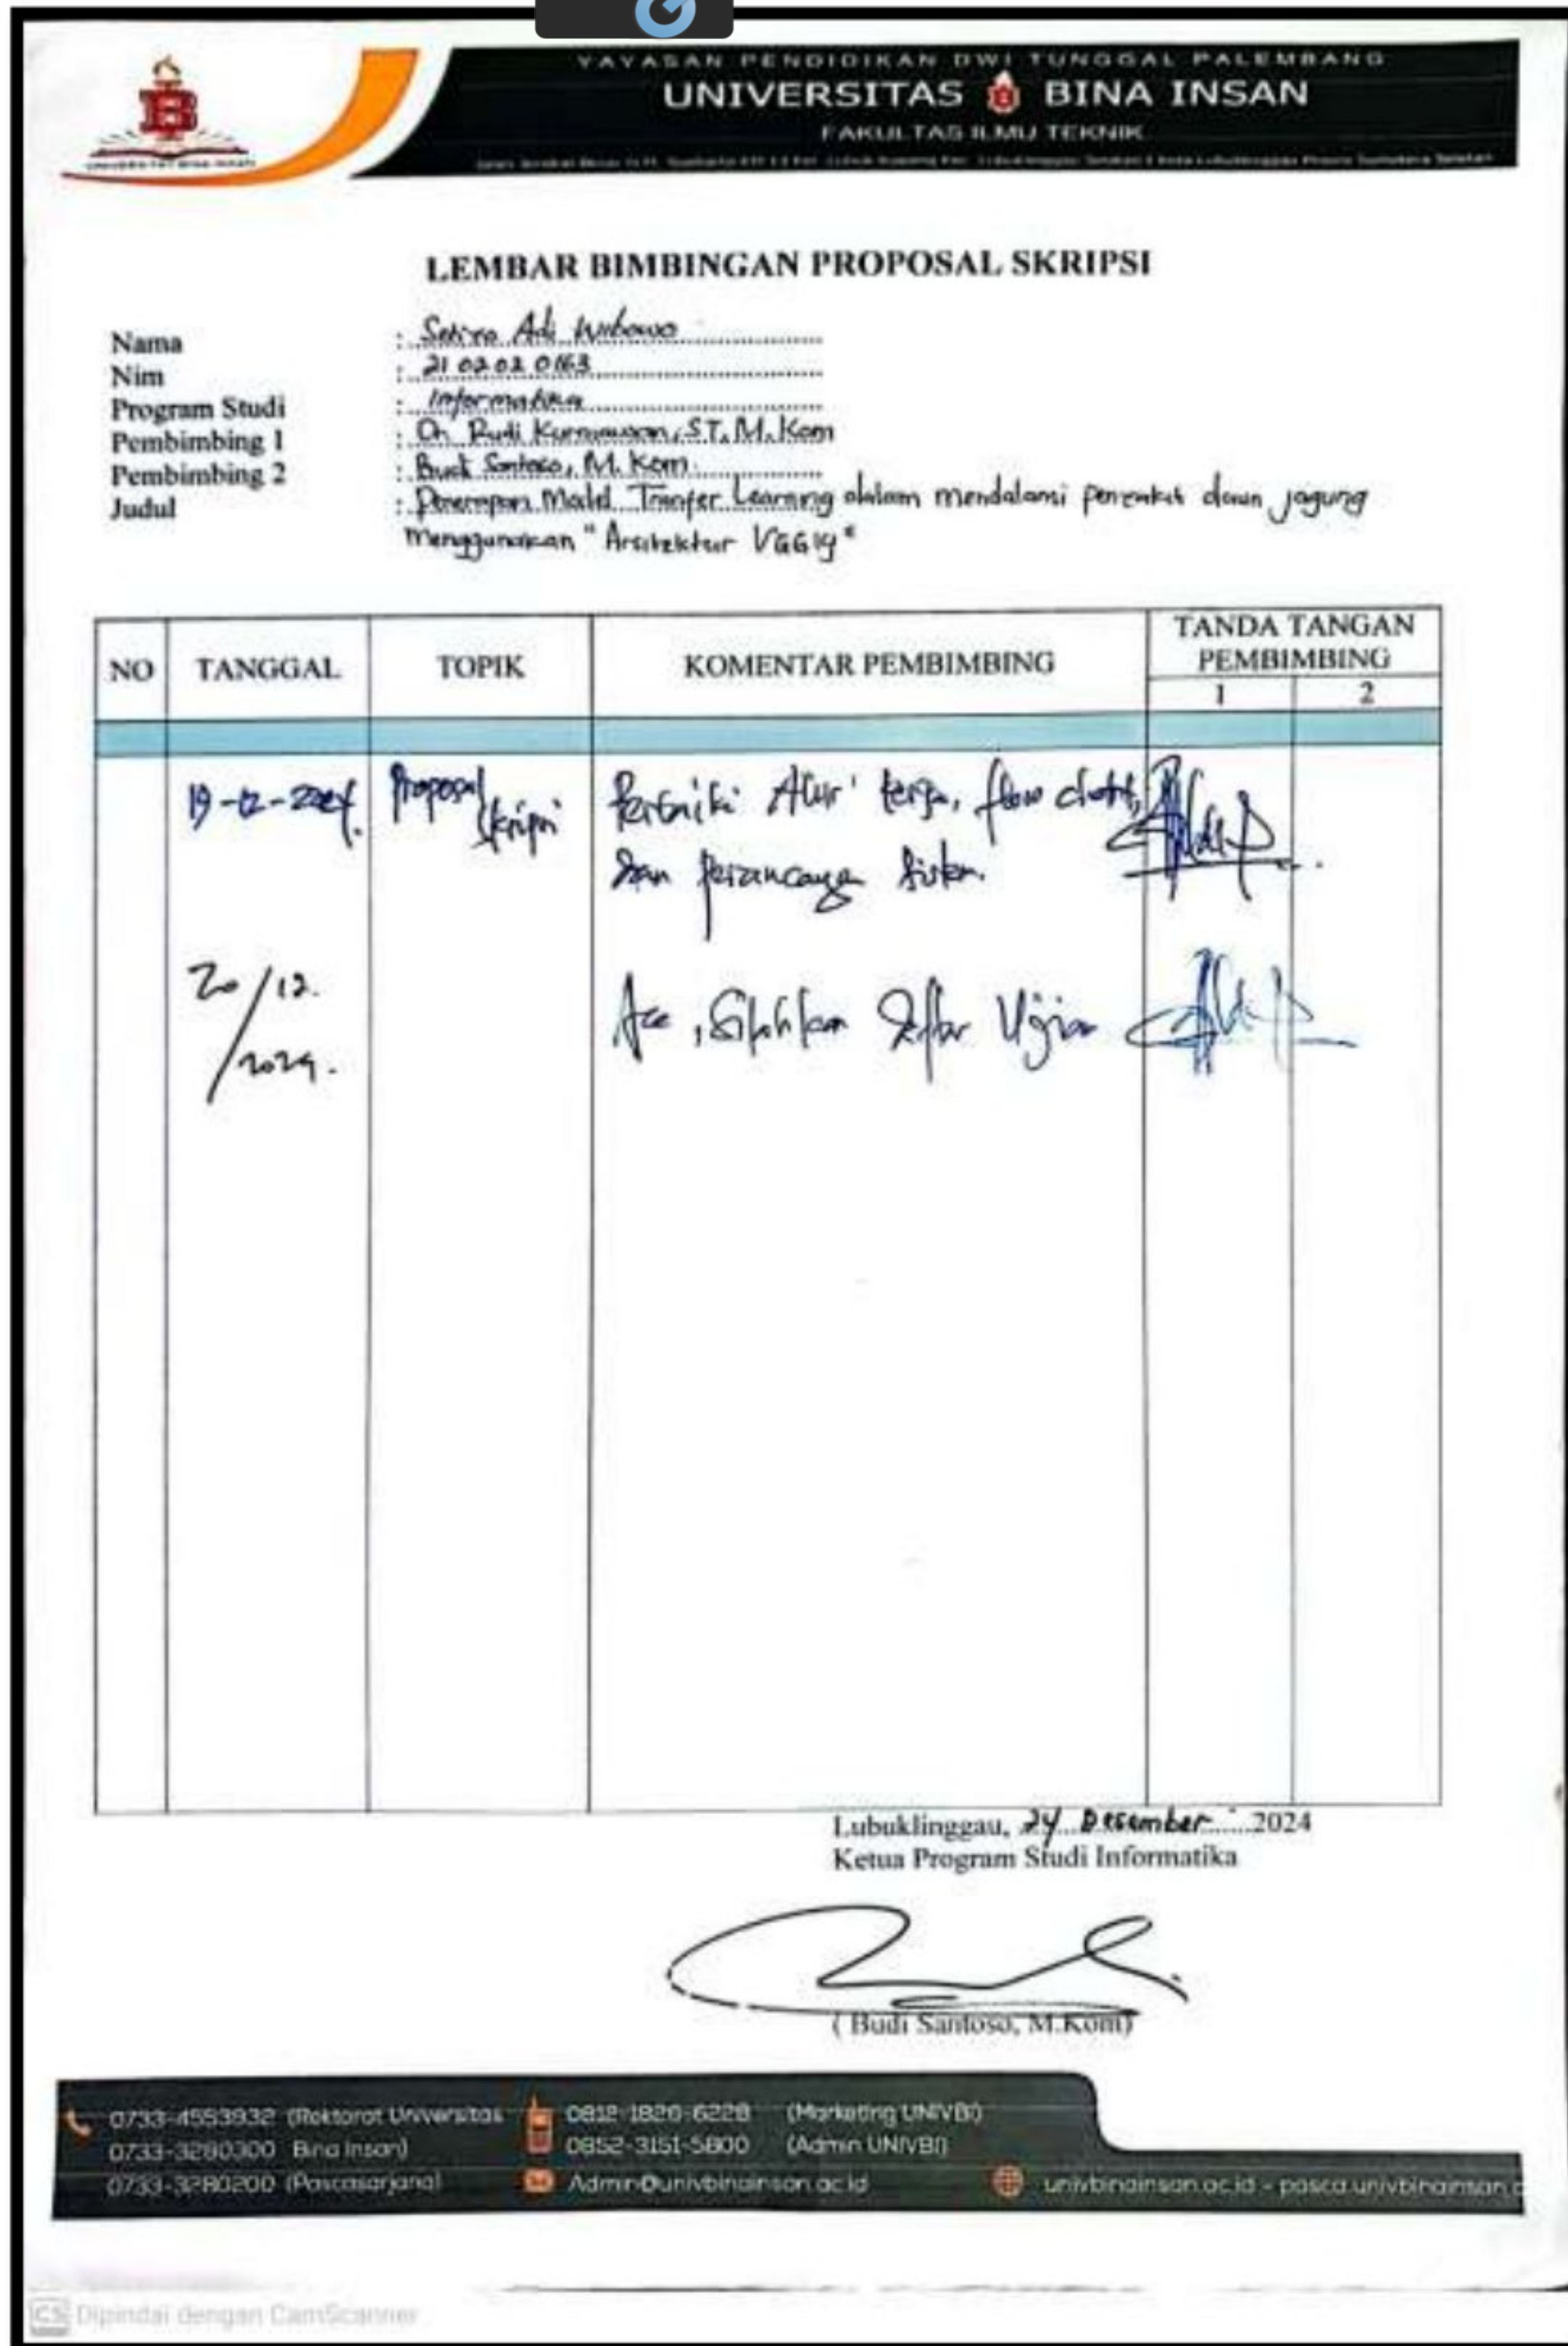 YAYASAN PENDIDIKAN DWI TUNGGAL PALEMBANG
UNIVERSITAS BINA INSAN
FAKULTAS ILMU TEKNIK
UNIVERSITAS BINA INSAN
LEMBAR BIMBINGAN PROPOSAL SKRIPSI
Nama : Adi Wibowo
Nim : 21 02 02 0163
Program Studi : Informatika
Pembimbing 1 : Dr. Rudi Kurniawan, ST, M.Kom
Pembimbing 2 : Budi Santoso, M.Kom
Judul : Penerapan Model Tranfer Learning dalam mendalami penyakit daun jagung
menggunakan "Arsitektur VGG19"
NO TANGGAL TOPIK KOMENTAR PEMBIMBING TANDA TANGAN
PEMBIMBING
1 2
19-12-2024. Proposal Perbaiki Alur kerja, flow chart,
Skripsi dan perancangan sistem.
20/12. Acc, Silahkan Daftar Ujian
/2024.
Lubuklinggau, 24 Desember 2024
Ketua Program Studi Informatika
( Budi Santoso, M.Kom)
0733-4553932 (Rektorat Universitas 0812-1820-6228 (Marketing UNIVBI)
0733-3280300 Bina Insan) 0852-3151-5800 (Admin UNIVBI)
0733-3280200 (Pascasarjana) Admin@univbinainsan.ac.id univbinainsan.ac.id - pasca.univbinainsan.
CS Dipindai dengan CamScanner